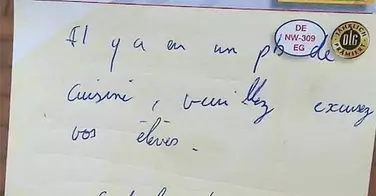 Il y a eu un pb de
cuisine, veuillez excusez
vos élèves.
DE
NW-309
EG
JÄHRLICH
DLG
PRÄMIERT